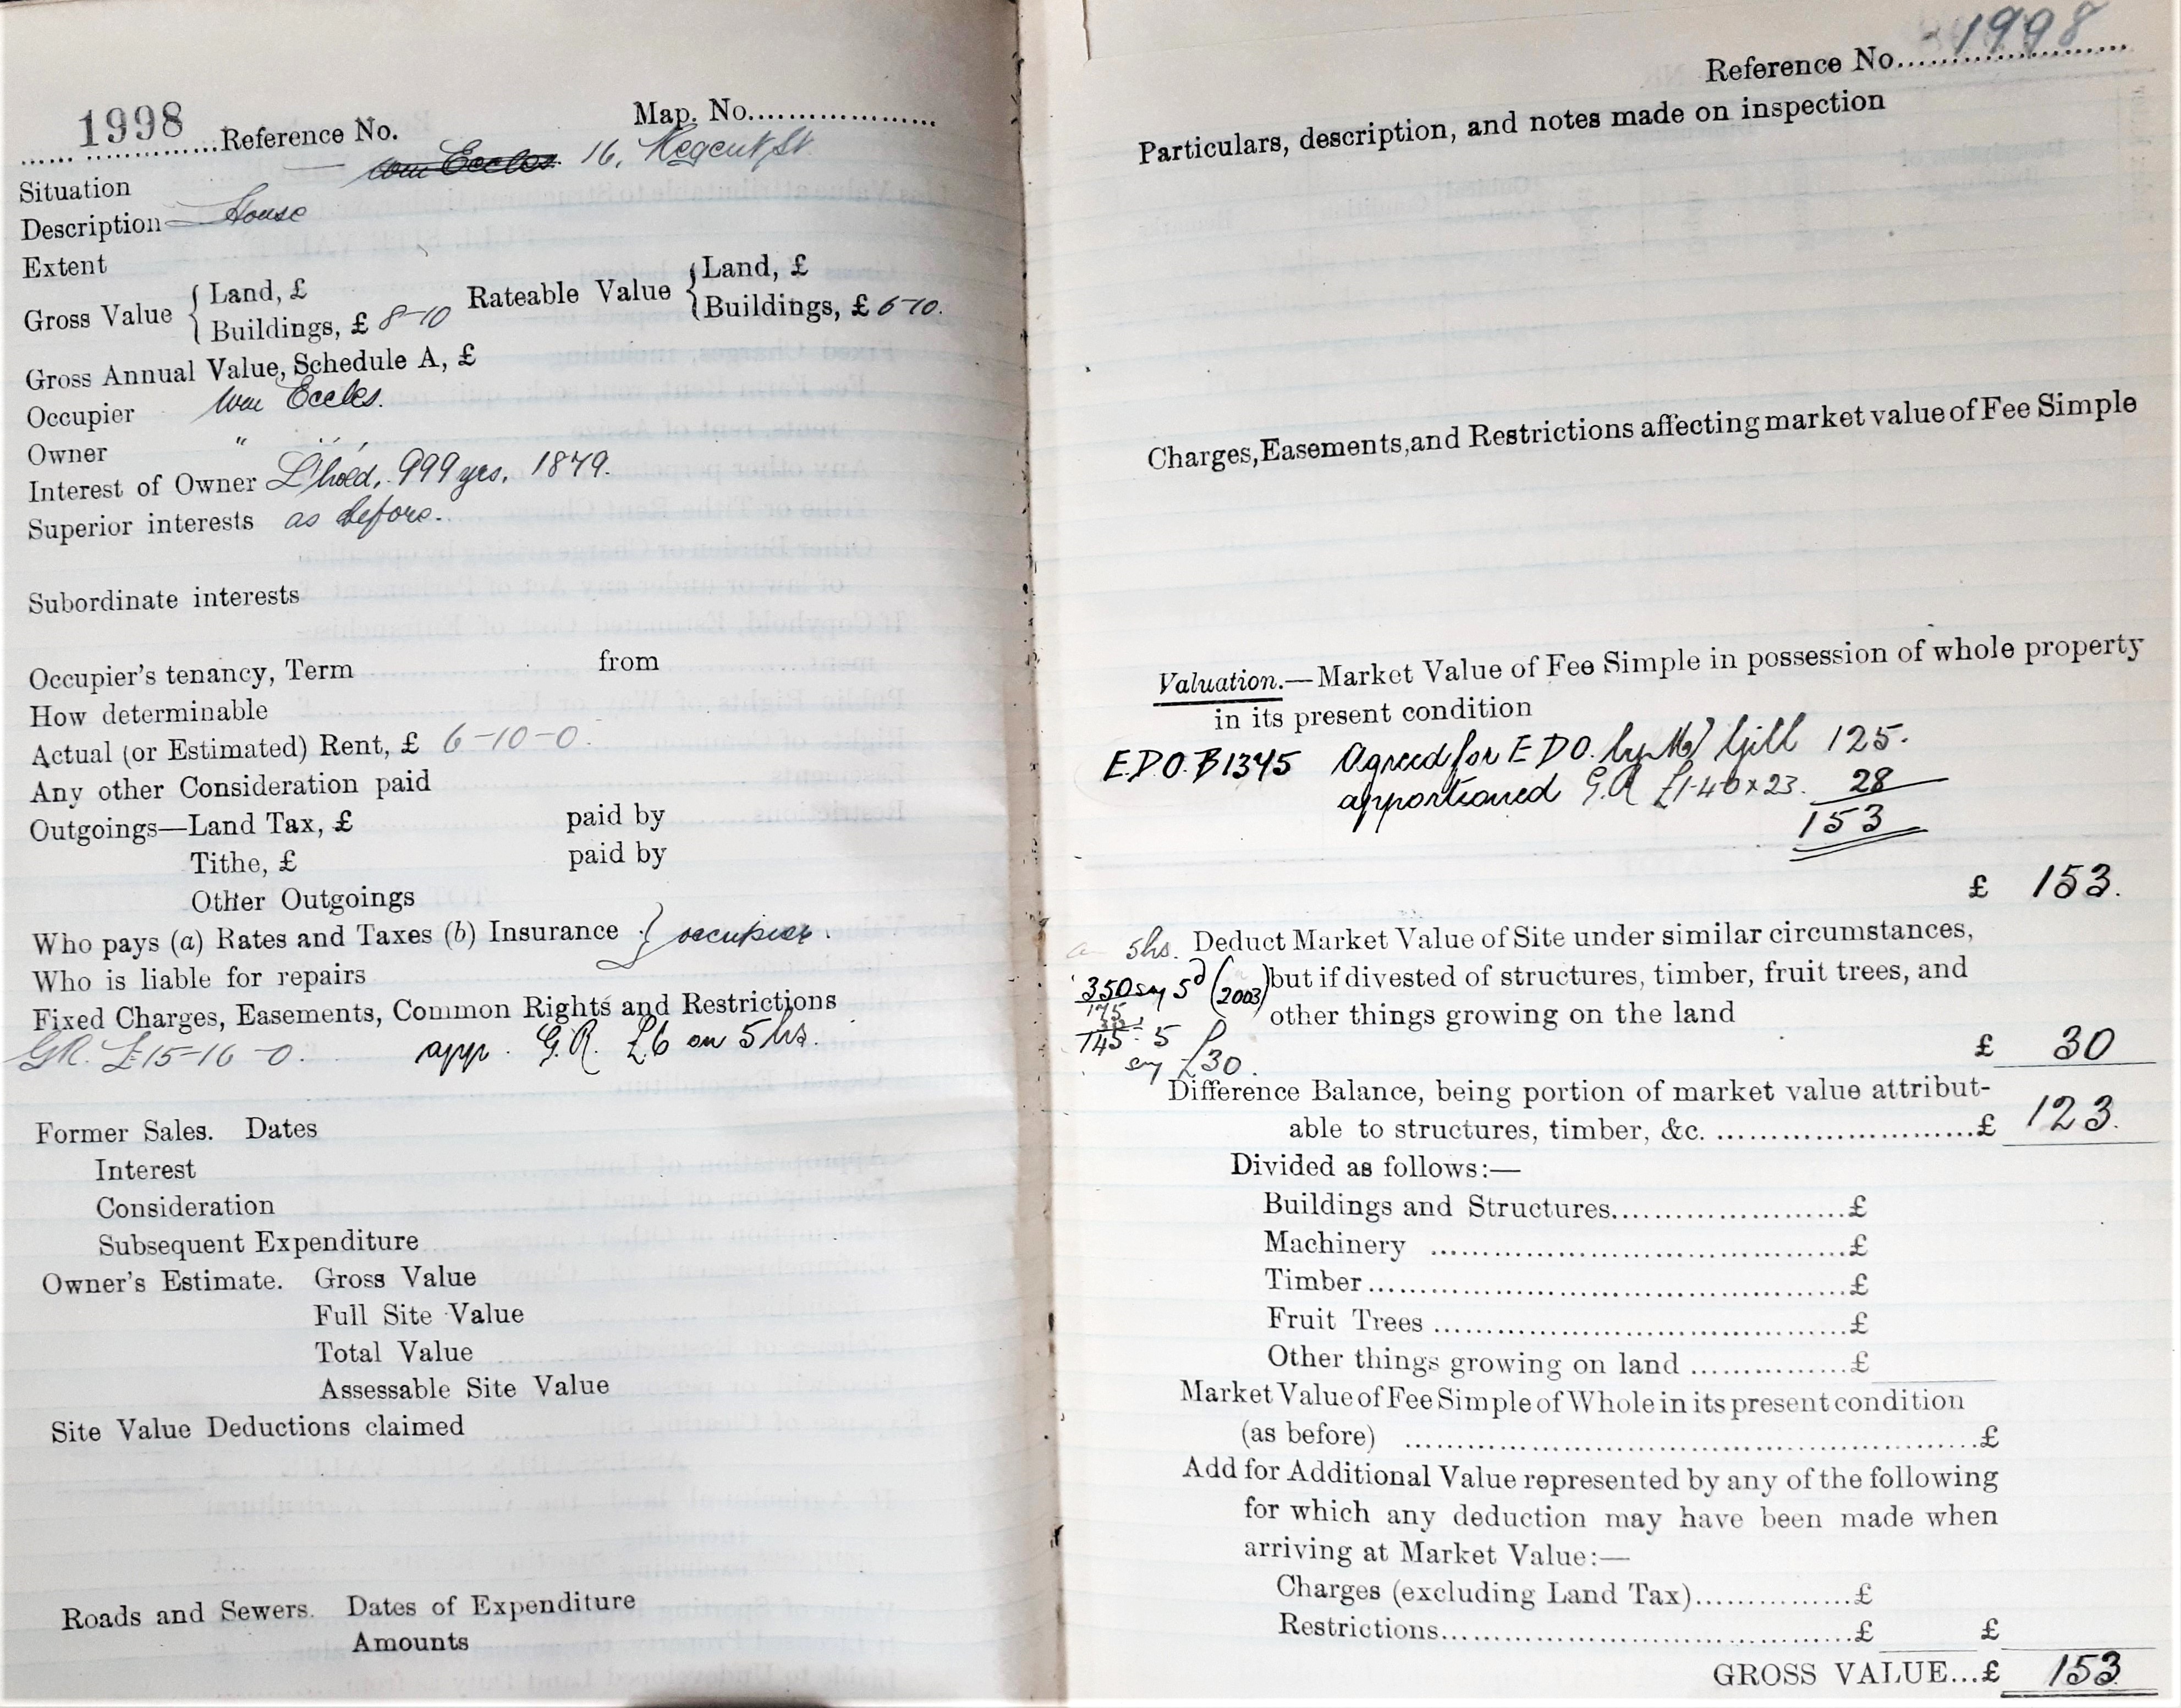 1998 Reference No. Map. No.
Situation — wm Eccles. 16, Regent St
Description House
Extent
Gross Value { Land, £ Rateable Value { Land, £
Buildings, £ 8-10 Buildings, £ 6-10.
Gross Annual Value, Schedule A, £
Occupier Wm Eccles.
Owner " " "
Interest of Owner L'hold, 999 yrs, 1879.
Superior interests as before.
Subordinate interests
Occupier's tenancy, Term from
How determinable
Actual (or Estimated) Rent, £ 6-10-0.
Any other Consideration paid
Outgoings—Land Tax, £ paid by
Tithe, £ paid by
Other Outgoings
Who pays (a) Rates and Taxes (b) Insurance } occupier.
Who is liable for repairs
Fixed Charges, Easements, Common Rights and Restrictions
GR. £15-16-0. app. G.R. £6 on 5 hs.
Former Sales. Dates
Interest
Consideration
Subsequent Expenditure
Owner's Estimate. Gross Value
Full Site Value
Total Value
Assessable Site Value
Site Value Deductions claimed
Roads and Sewers. Dates of Expenditure
Amounts
Reference No. 1998
Particulars, description, and notes made on inspection
Charges, Easements, and Restrictions affecting market value of Fee Simple
Valuation.—Market Value of Fee Simple in possession of whole property
in its present condition
E.D.O. B1345 Agreed for E D O. by Gill 125.
apportioned G.R £1-4-0 x 23. 28
153
£ 153.
5hs. Deduct Market Value of Site under similar circumstances,
350 say 5d (2003) but if divested of structures, timber, fruit trees, and
175 other things growing on the land
145 ÷ 5
say £30. £ 30
Difference Balance, being portion of market value attribut-
able to structures, timber, &c. £ 123.
Divided as follows:—
Buildings and Structures £
Machinery £
Timber £
Fruit Trees £
Other things growing on land £
Market Value of Fee Simple of Whole in its present condition
(as before) £
Add for Additional Value represented by any of the following
for which any deduction may have been made when
arriving at Market Value:—
Charges (excluding Land Tax) £
Restrictions £ £
GROSS VALUE...£ 153